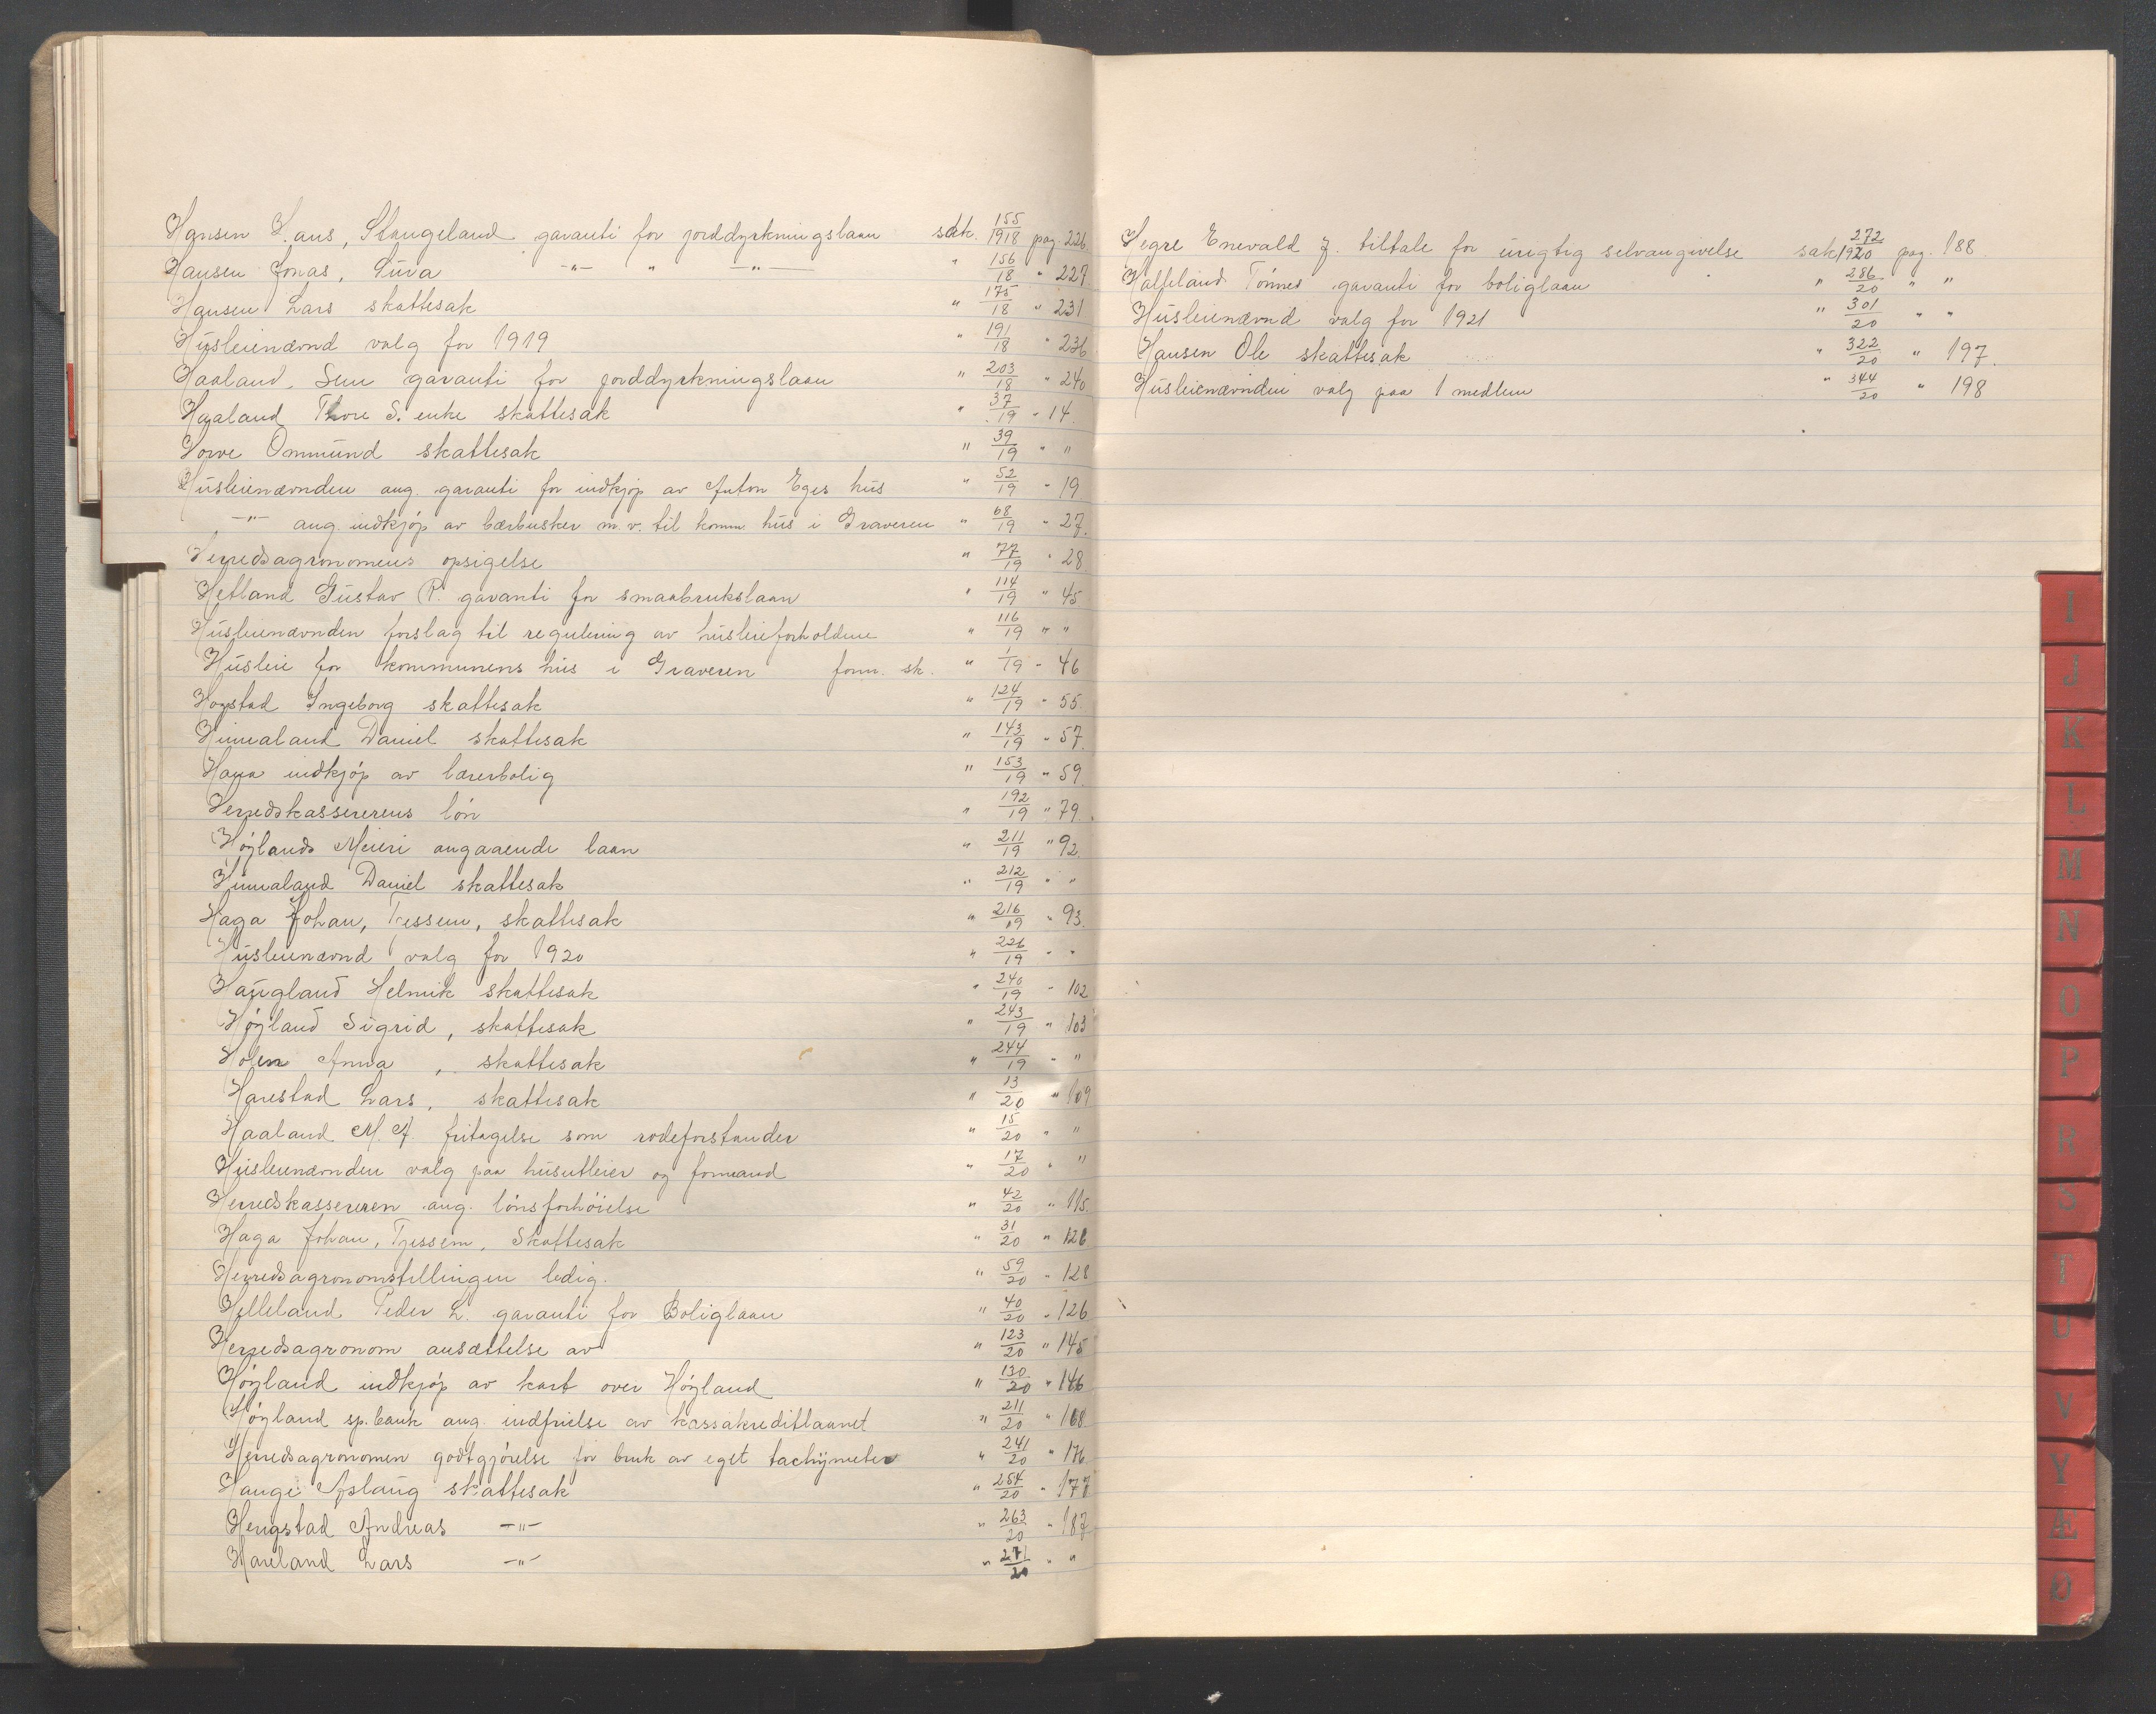 Hansen Hans, Stangeland garanti for jorddyrkningslaan sak. 155/1918 pag. 226.
Hansen Jonas, Lura -"- " -"- " 156/18 " 227
Hansen Lars skattesak " 175/18 " 231
Husleienævnd valg for 1919 " 191/18 " 236
Haaland, Sem garanti for jorddyrkningslaan " 203/18 " 240
Haaland Thore S. enke skattesak " 37/19 " 14.
Horve Ommund skattesak " 39/19 " "
Husleienævnden ang. garanti for indkjøp av Anton Eges hus " 52/19 " 19
-"- ang. indkjøp av bærbusker m.v. til komm. hus i Graveren " 68/19 " 27.
Herredsagronomens opsigelse " 77/19 " 28
Hetland Gustav R. garanti for smaabrukslaan " 114/19 " 45
Husleienævnden forslag til regulering av husleieforholdene " 116/19 " "
Husleie for kommunens hus i Graveren form. sk. " 1/19 " 46
Hogstad Ingeborg skattesak " 124/19 " 55.
Himaland Daniel skattesak " 143/19 " 57.
Hana indkjøp av lærerbolig " 153/19 " 59.
Herredskassererens løn " 192/19 " 79.
Høylands Meieri angaaende laan " 211/19 " 92.
Himaland Daniel skattesak " 212/19 " "
Haga Johan, Tjessem, skattesak " 216/19 " 93.
Husleienævnd valg for 1920 " 226/19 " "
Haugland Helmik skattesak " 240/19 " 102
Høyland Sigrid, skattesak " 243/19 " 103
Holen Anna, skattesak " 244/19 " "
Harestad Lars, skattesak " 13/20 " 109
Haaland M. A. fritagelse som rodeforstander " 15/20 " "
Husleienævnden valg paa husutleier og formand " 17/20 " "
Herredskassereren ang. lønsforhøielse " 42/20 " 115.
Haga Johan, Tjessem, Skattesak " 31/20 " 126
Herredsagronomstillingen ledig. " 59/20 " 128
Helleland Peder L. garanti for Boliglaan " 40/20 " 126
Herredsagronom ansættelse av " 123/20 " 145
Høyland indkjøp av kart over Høyland " 130/20 " 146
Høyland sp.bank ang. indfrielse av kassakreditlaanet " 211/20 " 168
Herredsagronomen godtgjørelse for bruk av eget tachymeter " 241/20 " 176
Hauge Aslaug skattesak " 254/20 " 177
Hengstad Andreas -"- " 263/20 " 187
Hareland Lars -"- " 271/20 " "
Hegre Enevald J. tiltale for urigtig selvangivelse sak 272/1920 pag. 188
Halleland Tønnes garanti for boliglaan " 286/20 " "
Husleienævnd valg for 1921 " 301/20 " "
Hansen Ole skattesak " 322/20 " 197.
Husleienævnden valg paa 1 medlem " 344/20 " 198
I
J
K
L
M
N
O
P
R
S
T
U
V
Y
Æ
Ø